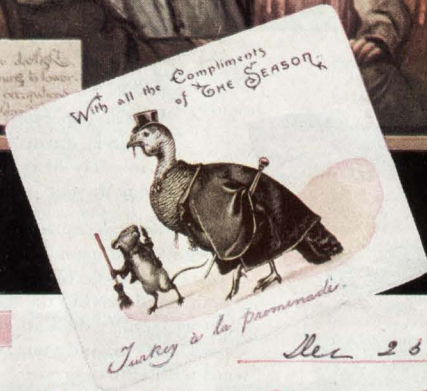 With all the Compliments
of THE SEASON.
Turkey à la promenade.
Dec 25